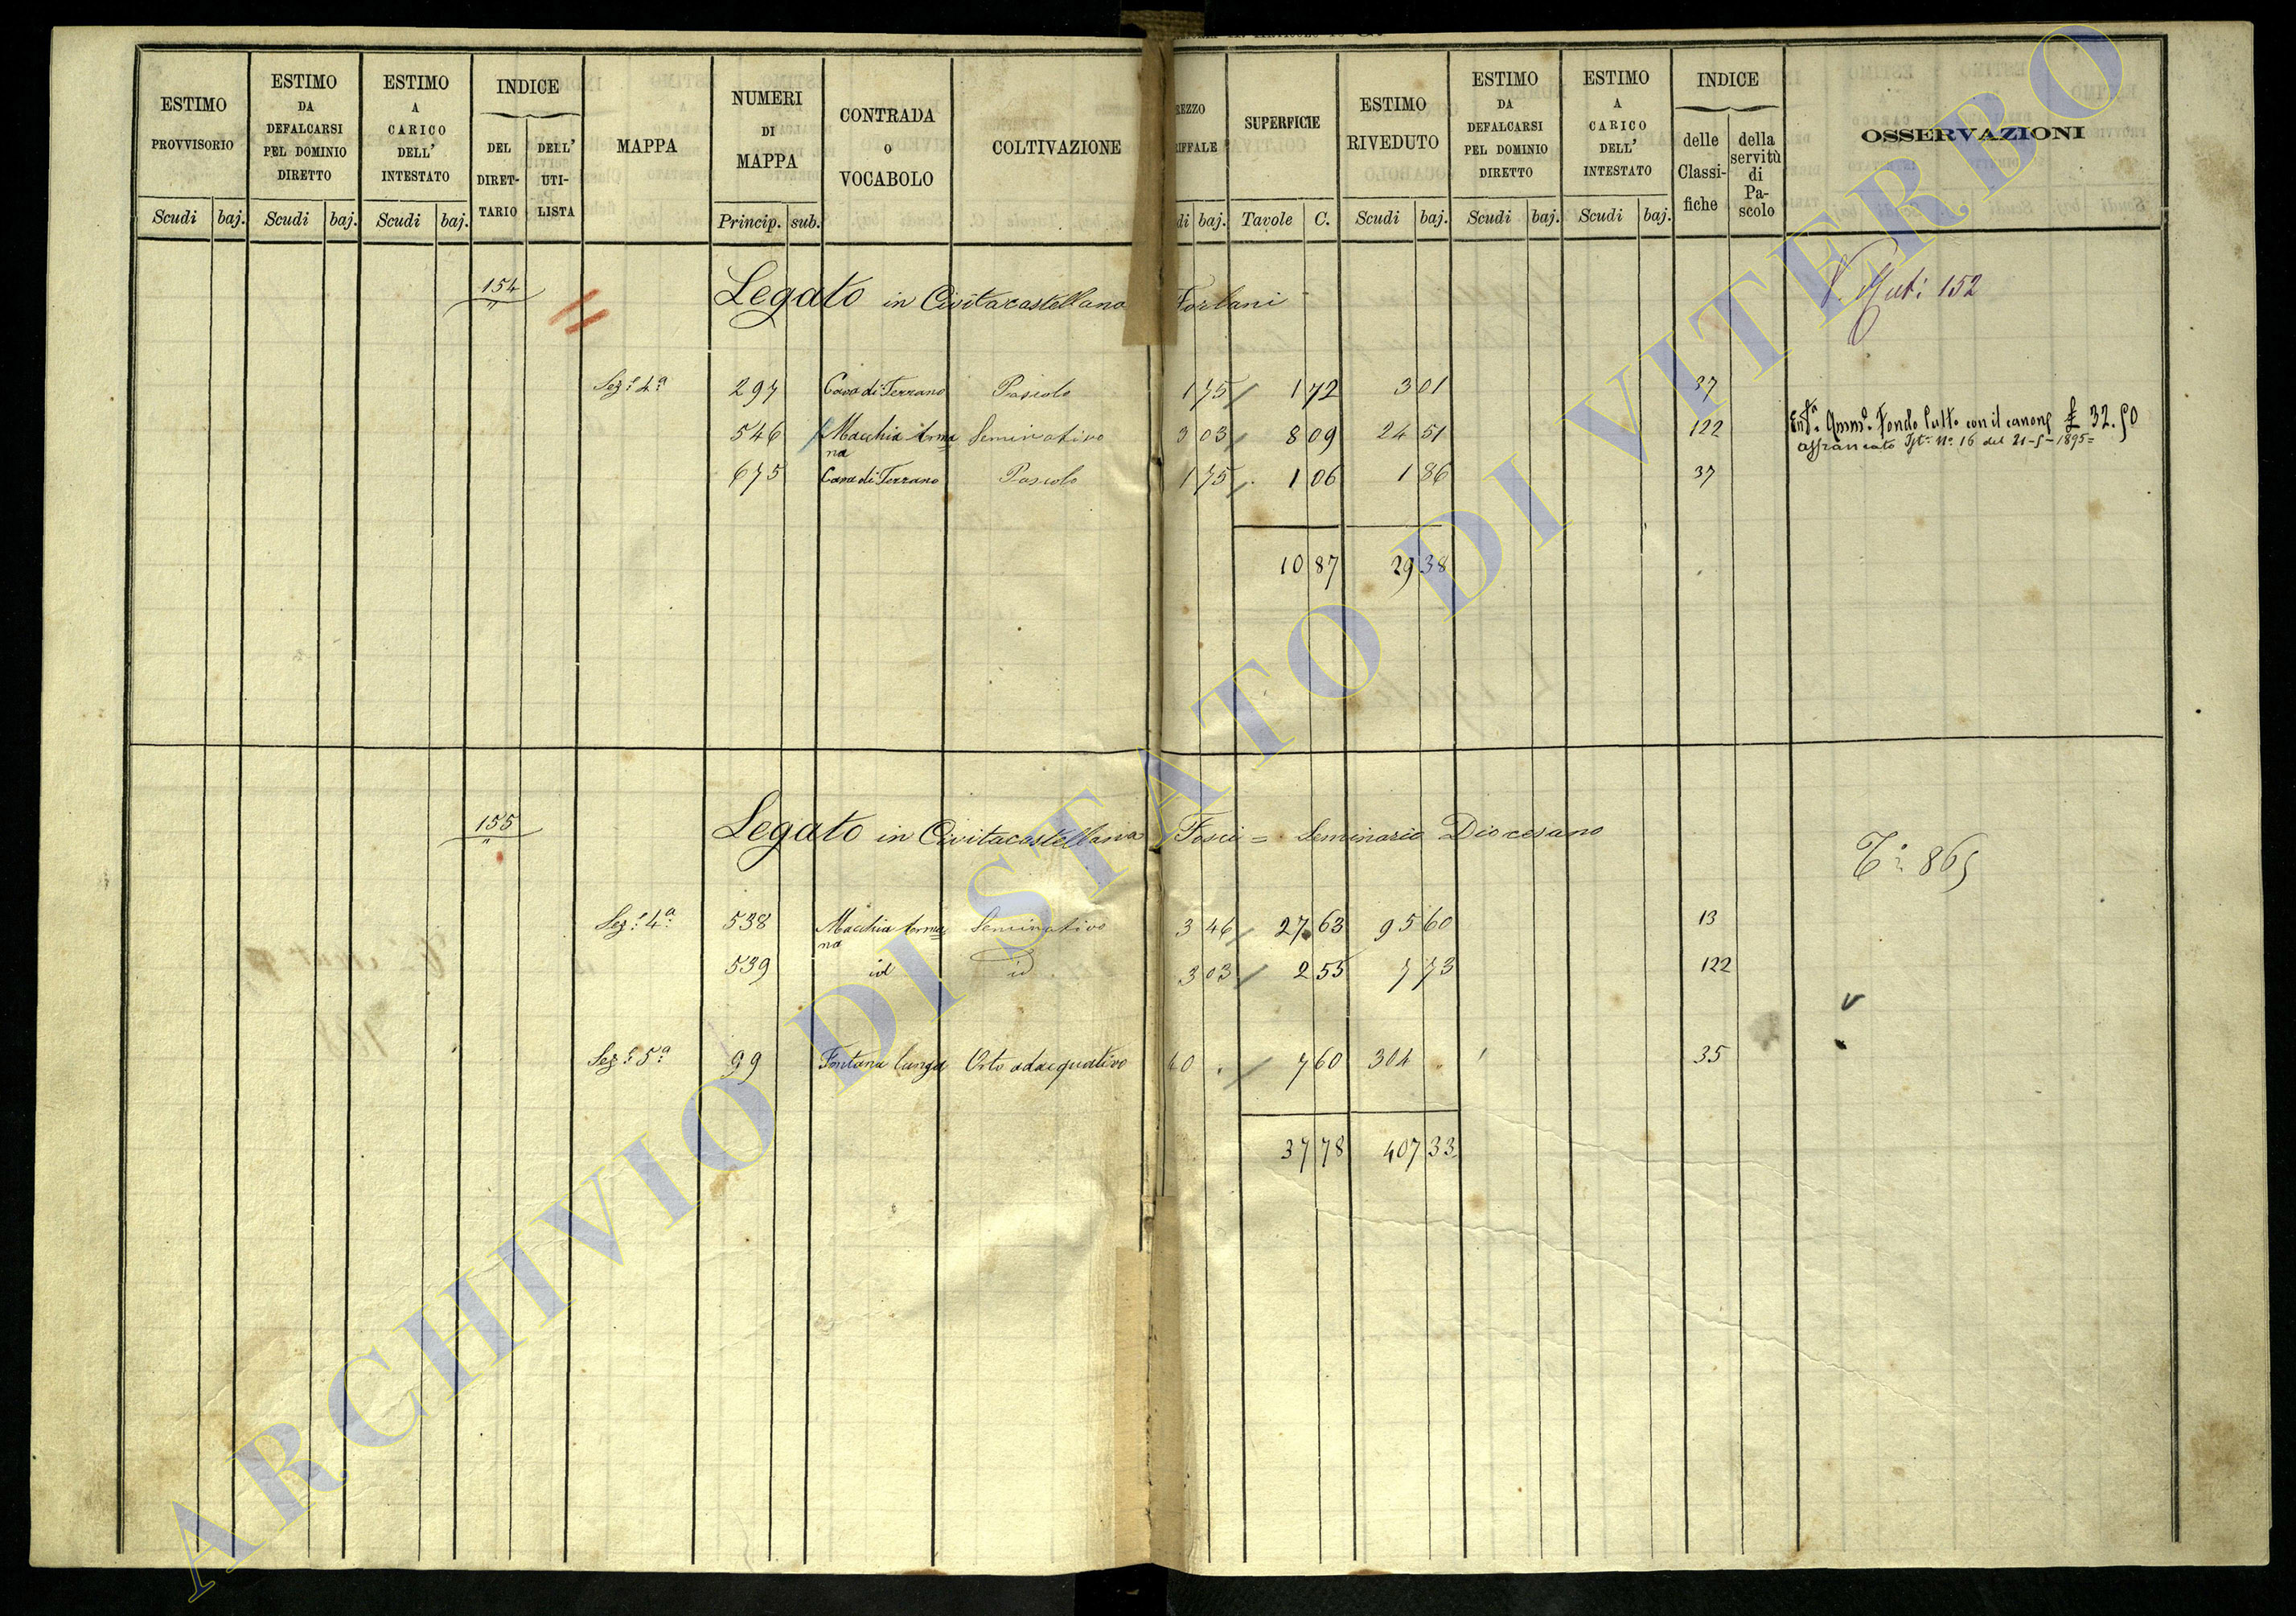 ESTIMO PROVVISORIO
Scudi baj.
ESTIMO DA DEFALCARSI PEL DOMINIO DIRETTO
Scudi baj.
ESTIMO A CARICO DELL' INTESTATO
Scudi baj.
INDICE
DEL DIRET-TARIO
DELL' UTI-LISTA
MAPPA
NUMERI DI MAPPA
Princip. sub.
CONTRADA o VOCABOLO
COLTIVAZIONE
REZZO
RIFFALE
di baj.
SUPERFICIE
Tavole C.
ESTIMO RIVEDUTO
Scudi baj.
ESTIMO DA DEFALCARSI PEL DOMINIO DIRETTO
Scudi baj.
ESTIMO A CARICO DELL' INTESTATO
Scudi baj.
INDICE
delle Classi-fiche
della servitù di Pa-scolo
OSSERVAZIONI
154 Legato in Civitacastellana Forlani 152
"
Sez.e 4a 297 Cava di Terrano Pascolo 1 75 1 72 3 01 37
546 Macchia Arma= Seminativo 3 03 8 09 24 51 122 Fondo con il canone £ 32.50
na affrancato Ist. No. 16 del 21-5-1895=
675 Cava di Terrano Pascolo 1 75 1 06 1 86 37
10 87 29 38
155 Legato in Civitacastellana Fosci = Seminario Diocesano
"
To: 865
Sez.e 4a 538 Macchia Arma= Seminativo 3 46 27 63 95 60 13
na
539 id id 3 03 2 55 7 73 122
Sez.e 5a 99 Fontana lunga Orto adacquativo 40 . 7 60 304 . 35
37 78 407 33
ARCHIVIO DI STATO DI VITERBO